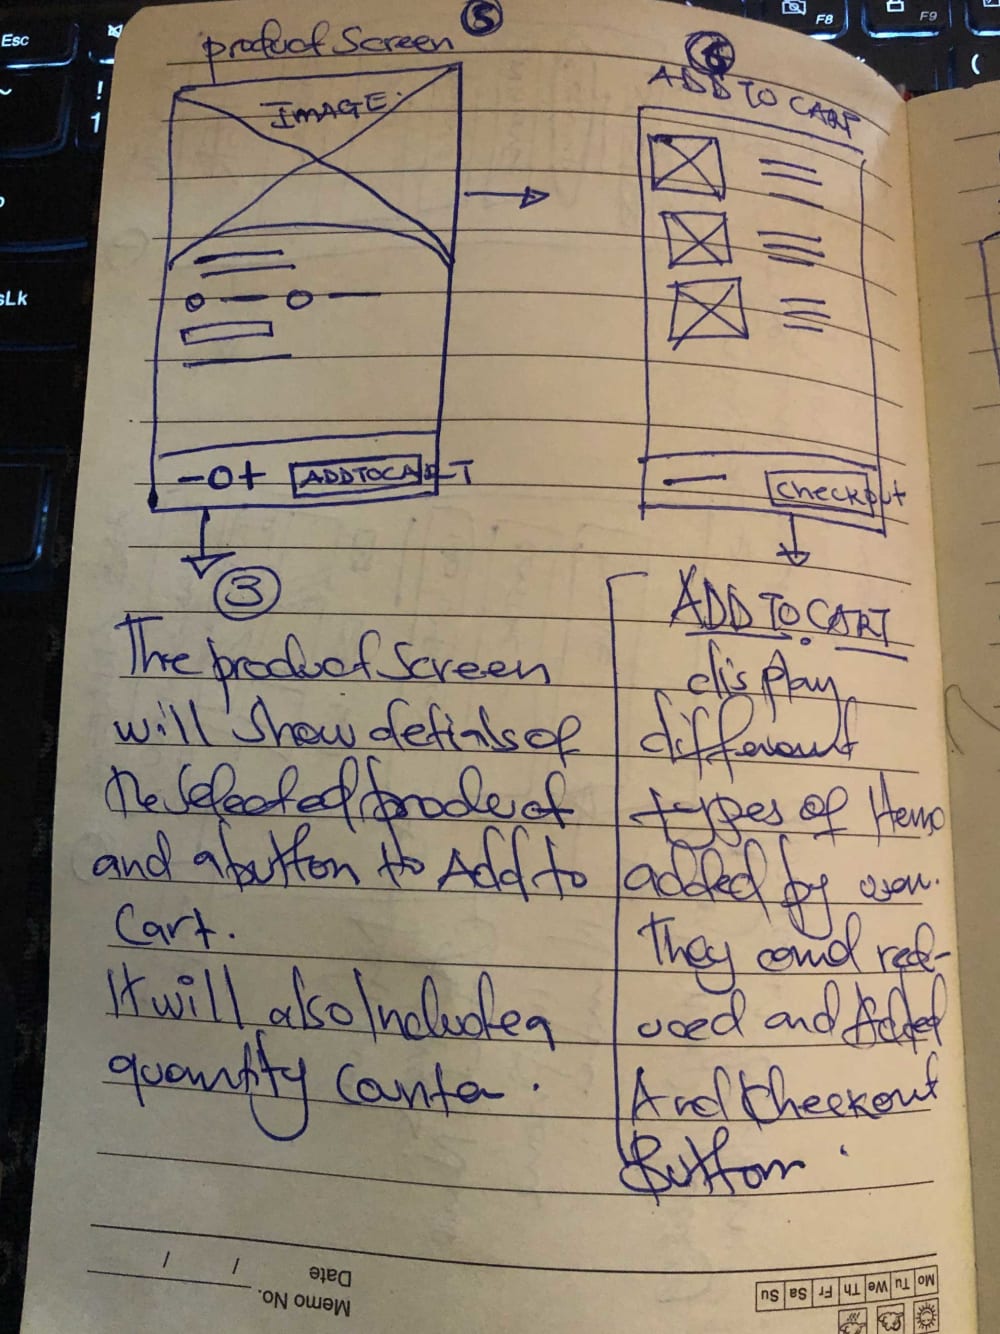 Esc
F8
F9
sLk
product Screen
5
IMAGE.
- 0 +
ADD TO CART
6
ADD TO CART
Checkout
3
The product Screen
will show detials of
the Selected product
and a button to Add to
Cart.
It will also Include a
quantity
ADD TO CART
display
different
types of Items
added by user.
They could red-
uced and Added
And Checkout
Button.
Memo No.
Date / /
Mo Tu We Th Fr Sa Su